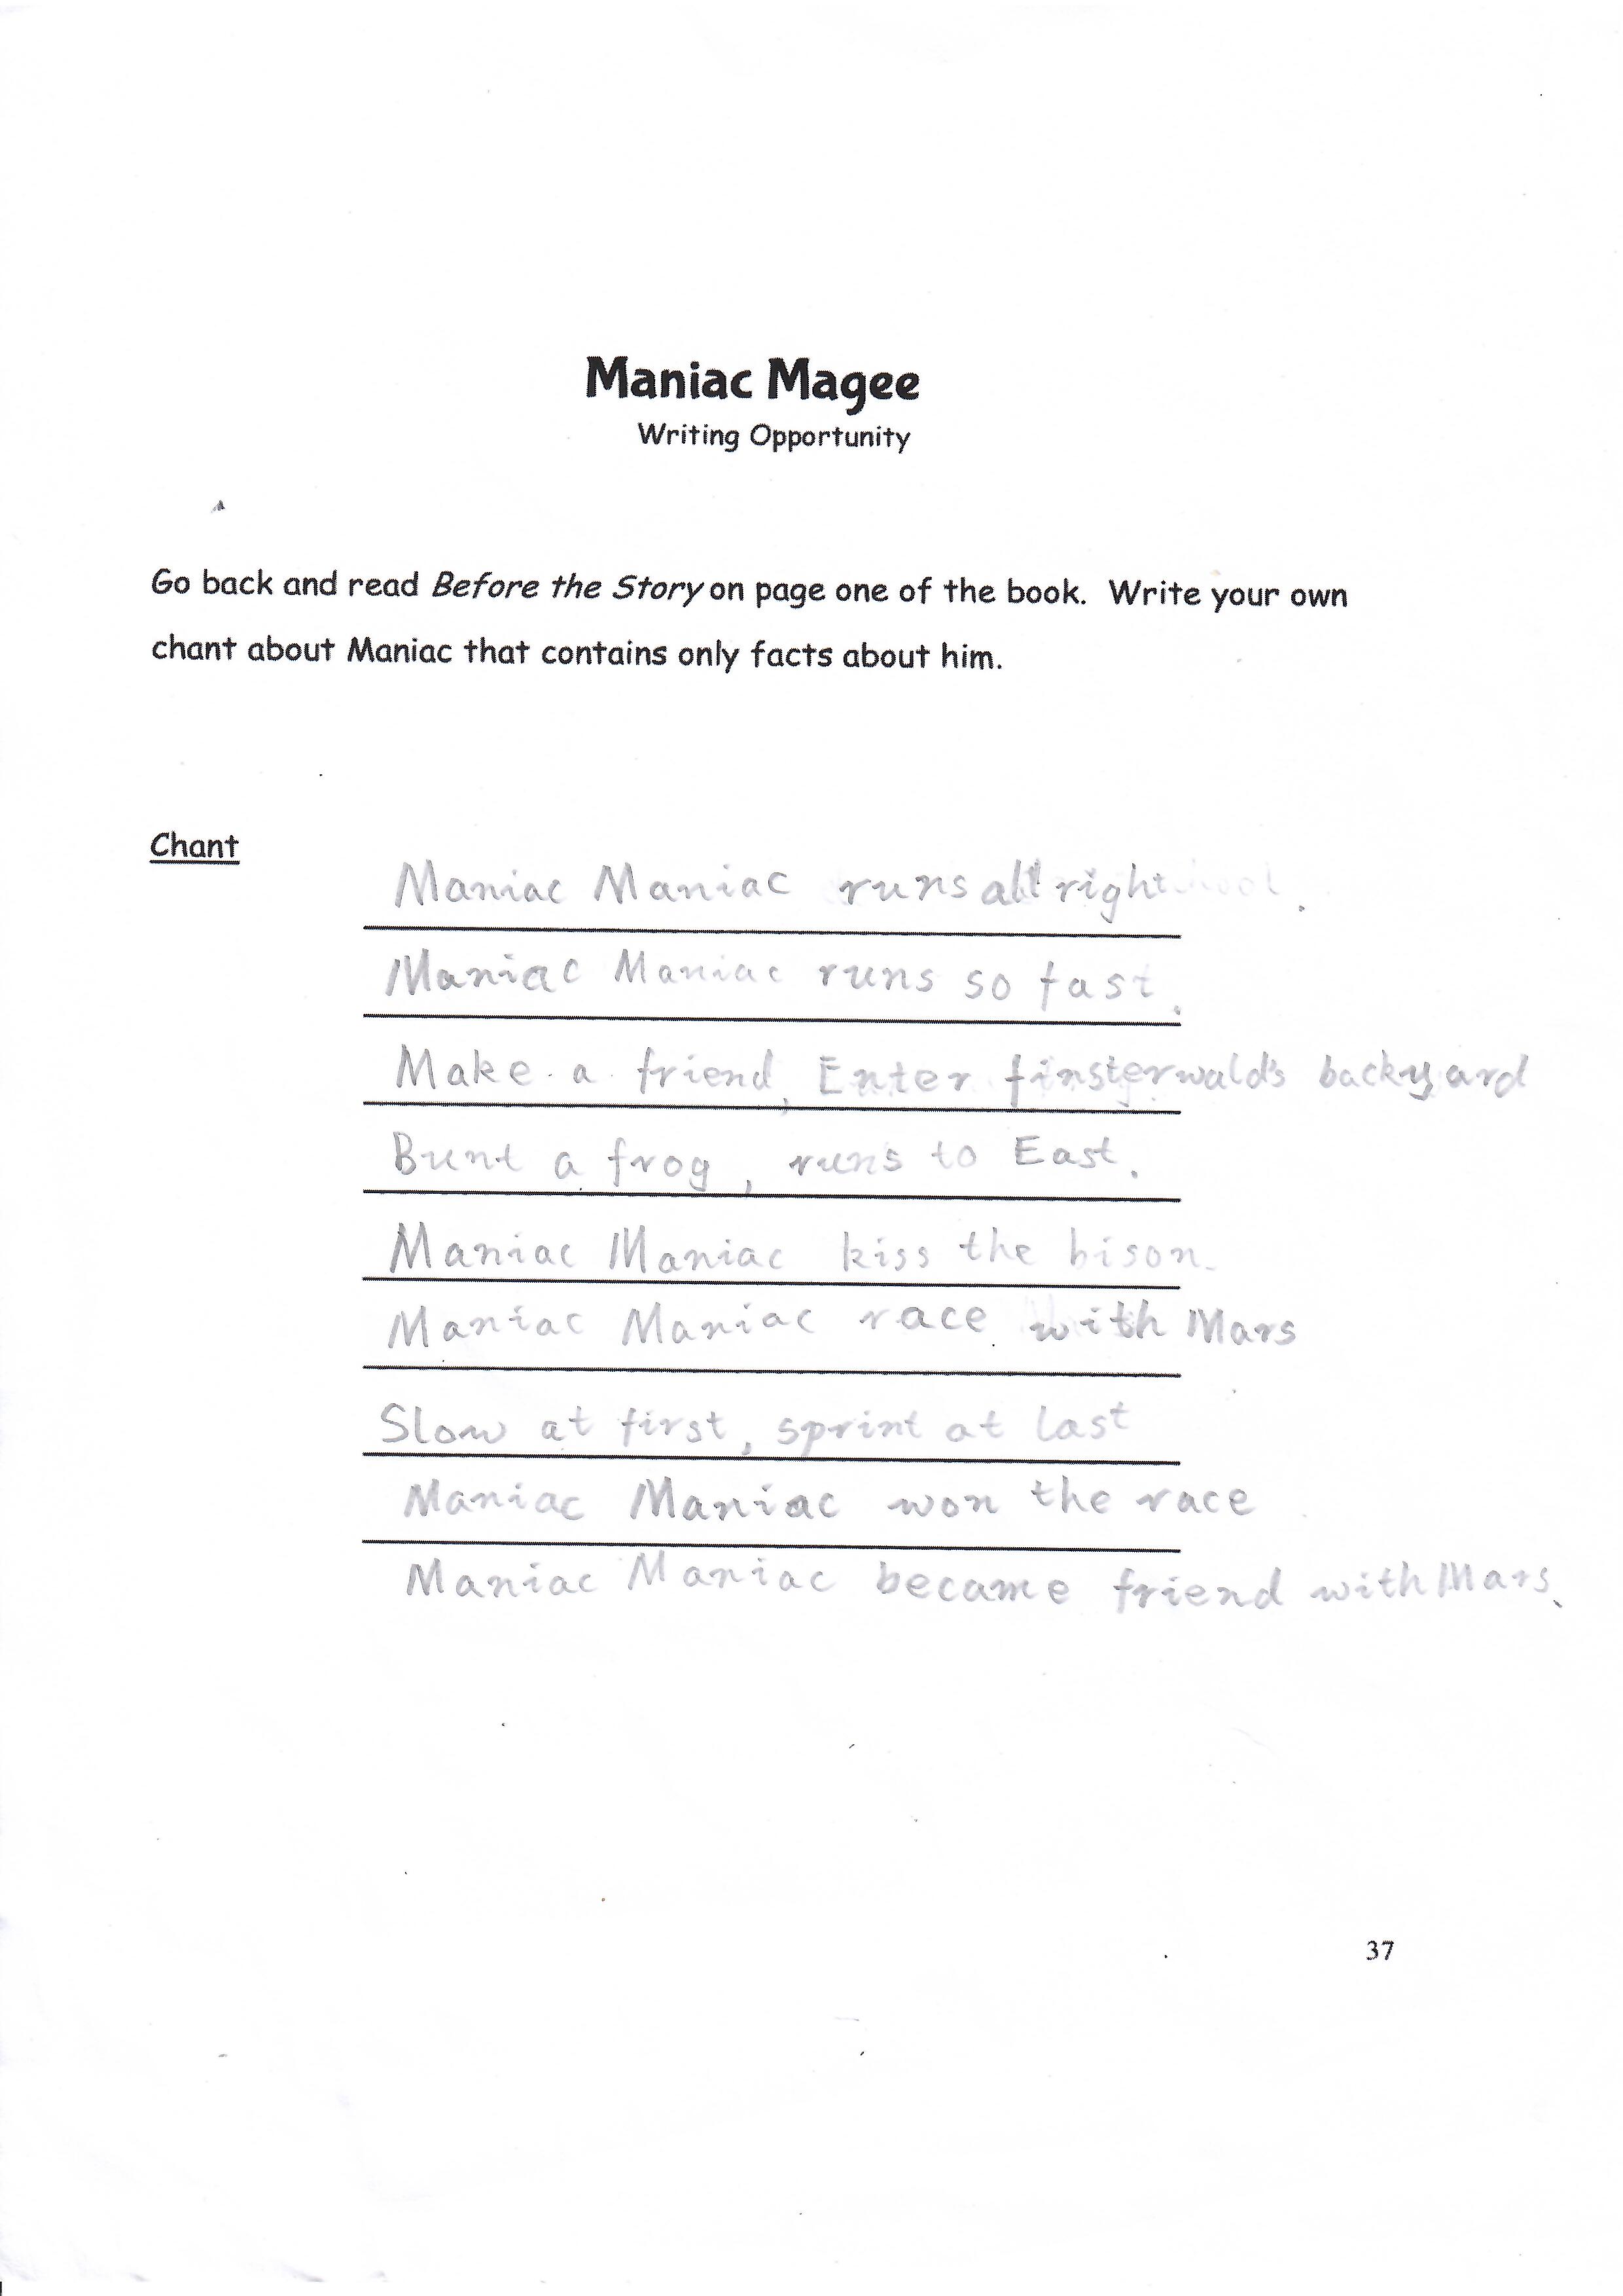 Maniac Magee
Writing Opportunity
Go back and read Before the Story on page one of the book. Write your own
chant about Maniac that contains only facts about him.
Chant
Maniac Maniac runs all right.
Maniac Maniac runs so fast.
Make a friend, Enter finsterwald's backyard
Bunt a frog, runs to East.
Maniac Maniac kiss the bison.
Maniac Maniac race with Mars
Slow at first, sprint at last
Maniac Maniac won the race
Maniac Maniac became friend with Mars.
37